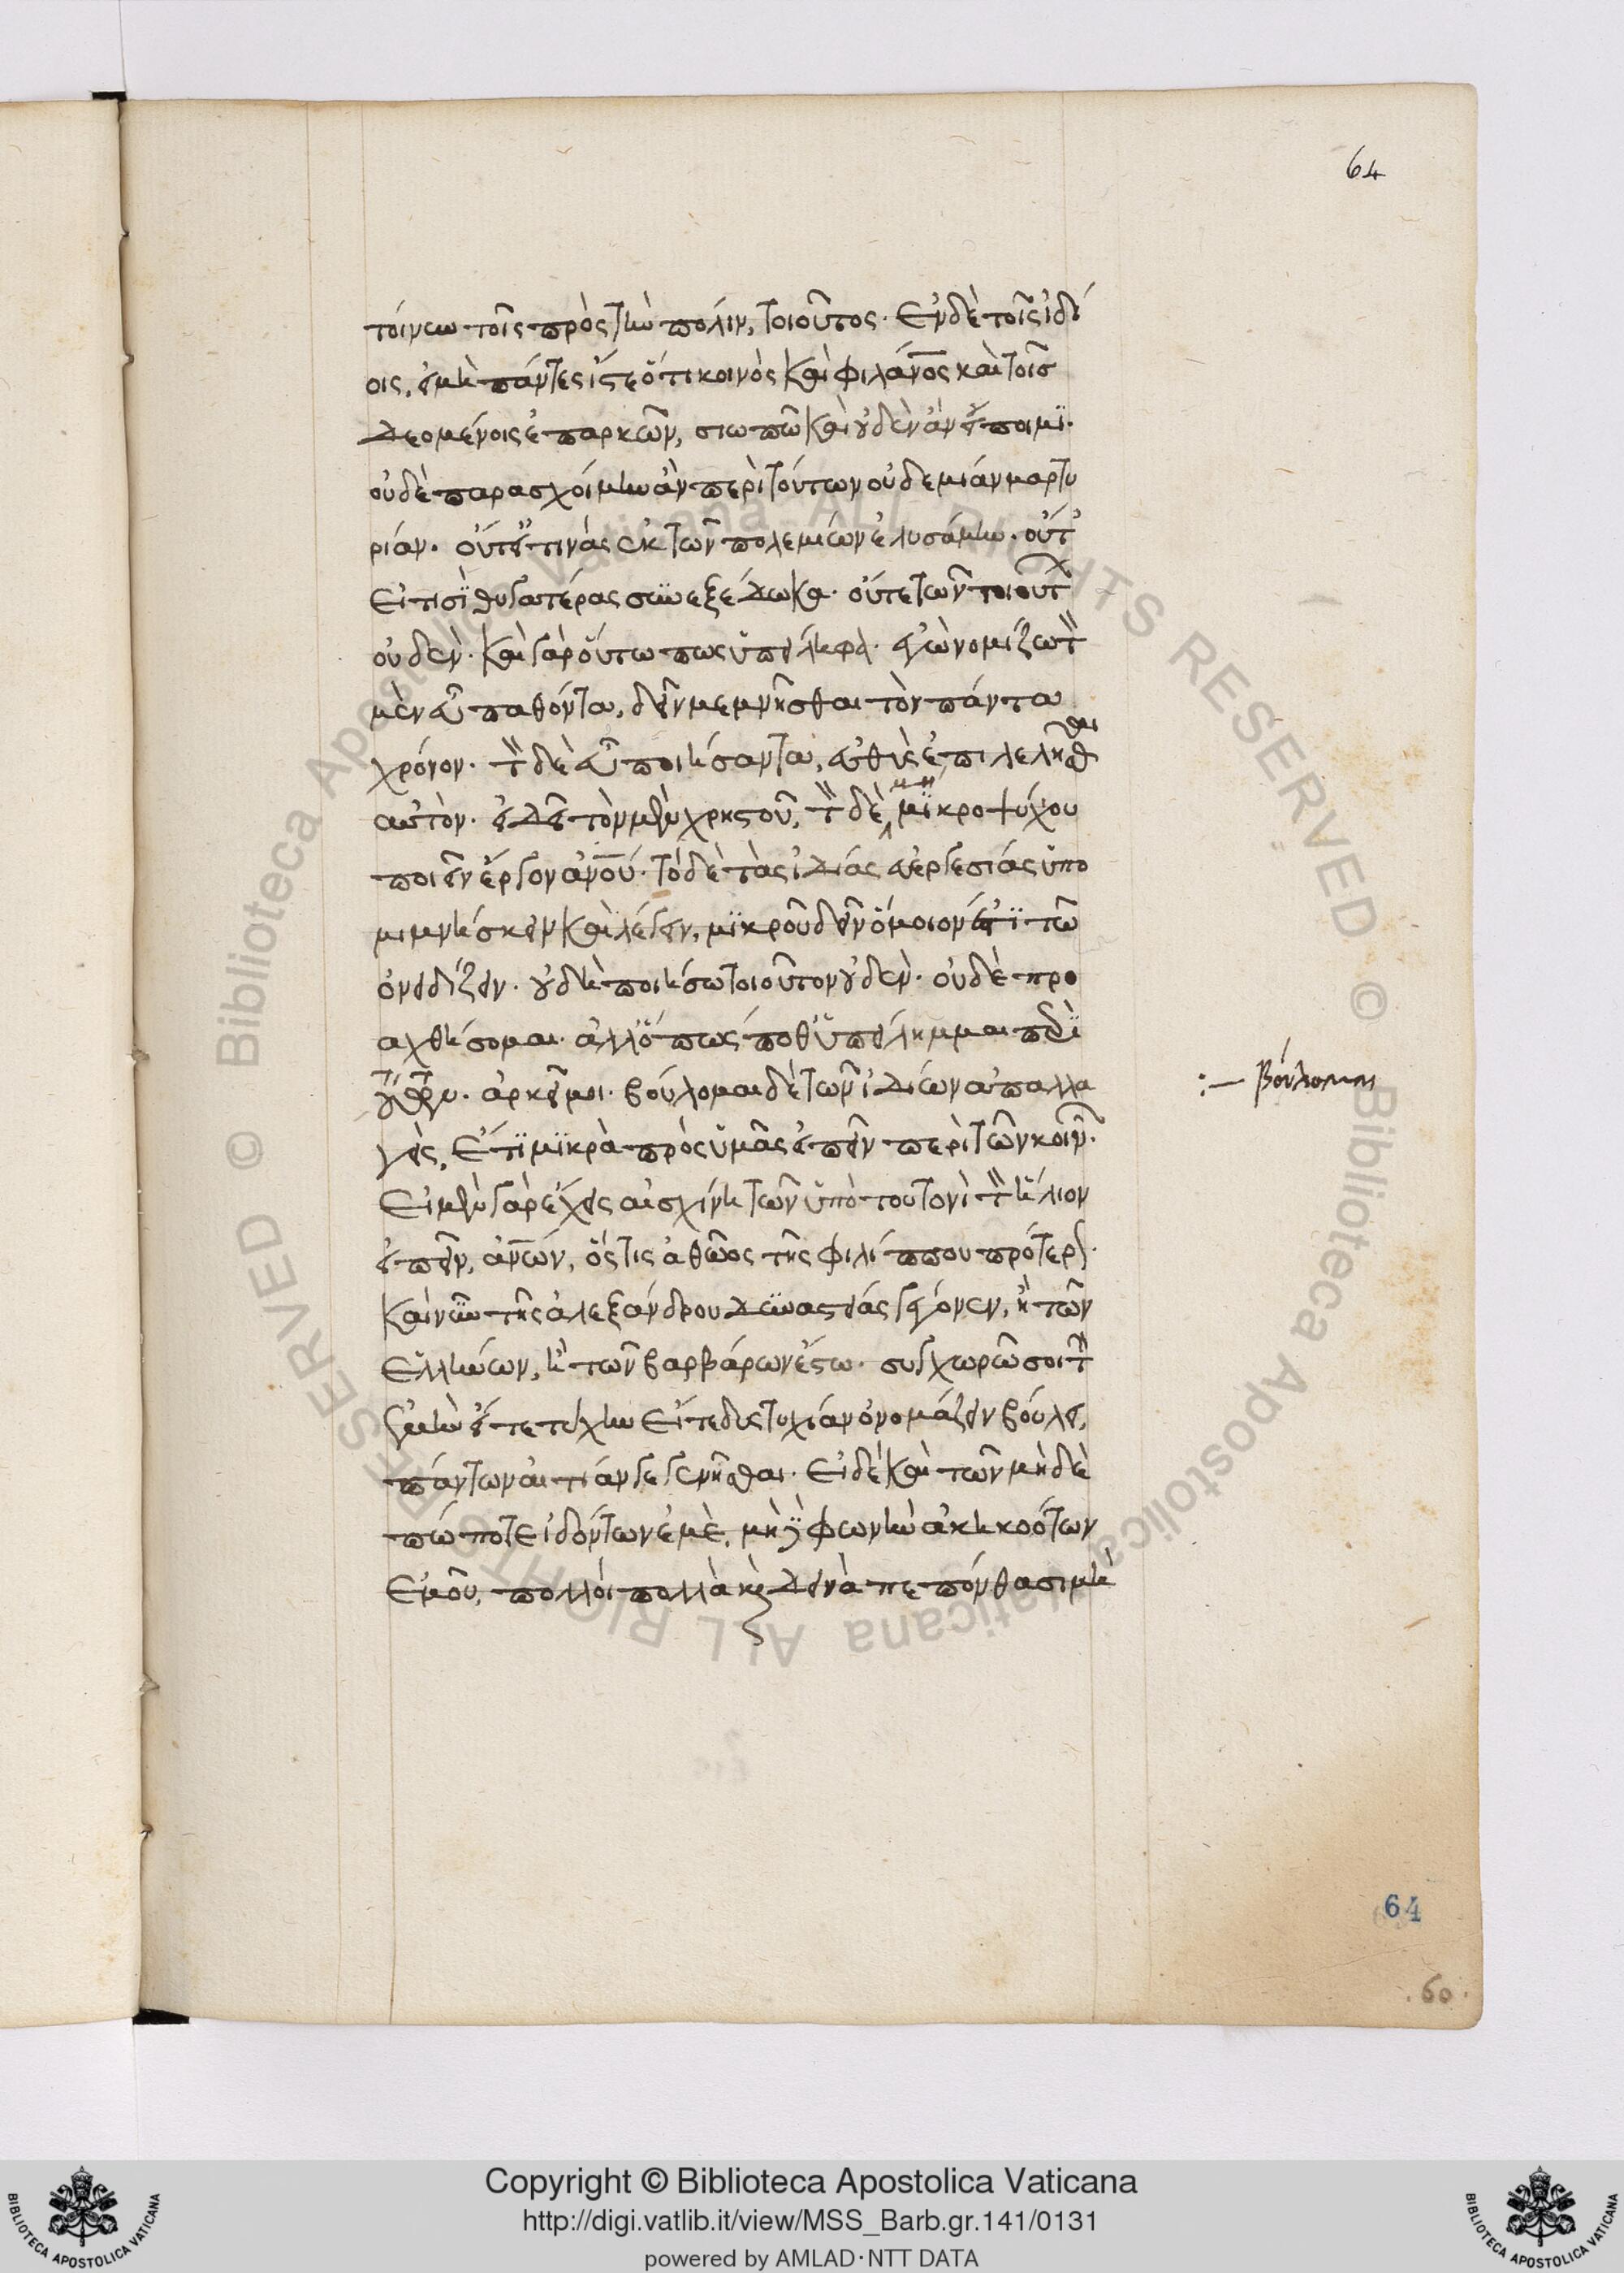 64
τοίνυν τοῖς πρὸς τὴν πόλιν, τοιοῦτος. Ἐν δὲ τοῖς ἰδί
οις, εἰ μὴ πάντες ἴστε ὅτι κοινὸς καὶ φιλάνος καὶ τοῖς
δεομένοις ἐπαρκῶν, σιωπῶ καὶ οὐδὲν ἂν εἴποιμι.
οὐδὲ παρασχοίμην ἂν περὶ τούτων οὐδεμίαν μαρτυ
ρίαν. οὔτ' εἴ τινας ἐκ τῶν πολεμίων ἐλυσάμην. οὔτ'
εἴ τισι θυγατέρας συνεξέδωκα. οὔτε τῶν τοιούτ
οὐδέν. καὶ γὰρ οὕτω πως ὑπείληφα. ἐγὼ νομίζω τὸν
μὲν εὖ παθόντα, δεῖν μεμνῆσθαι τὸν πάντα
χρόνον. τὸν δὲ εὖ ποιήσαντα, εὐθὺς ἐπιλελῆσθαι
αὐτόν. εἰ δεῖ τὸν μὲν χρηστοῦ, τὸν δὲ μὴ μικροψύχου
ποιεῖν ἔργον ἀνου. τὸ δὲ τὰς ἰδίας εὐεργεσίας ὑπο
μιμνήσκειν καὶ λέγειν, μικροῦ δεῖν ὅμοιόν ἐστι τῶ
ὀνειδίζειν. οὐ δὴ ποιήσω τοιοῦτον οὐδέν. οὐδὲ προ
αχθήσομαι. ἀλλ' ὅπως ποθ' ὑπείλημμαι περὶ
τούτων. ἀρκεῖ μοι. βούλομαι δὲ τῶν ἰδίων ἀπαλλα
γεὶς, ἔτι μικρὰ πρὸς ὑμᾶς εἰπεῖν περὶ τῶν κοινῶν.
Εἰ μὲν γὰρ ἔχεις αἰσχίνη τῶν ὑπὸ τουτονὶ τὸν ἥλιον
εἰπεῖν, ἀνων, ὅστις ἀθῶος τῆς φιλίππου πρότερον.
καὶ νῦν τῆς ἀλεξάνδρου δυναστείας γέγονεν, ἢ τῶν
Ἑλλήνων, ἢ τῶν βαρβάρων ἔστω. συγχωρῶ σοι τὴν
ἐμὴν εἴτε τύχην εἴτε δυστυχίαν ὀνομάζειν βούλει,
πάντων αἰτίαν γεγενῆσθαι. Εἰ δὲ καὶ τῶν μηδὲ
πώποτε ἰδόντων ἐμὲ, μὴ δὲ φωνὴν ἀκηκοότων
ἐμοῦ, πολλοὶ πολλὰ καὶ δεινὰ πεπόνθασι μὴ
:— βούλομαι
64
60
© Biblioteca Apostolica Vaticana ALL RIGHTS RESERVED © Biblioteca Apostolica Vaticana ALL RIGHTS RESERVED
Copyright © Biblioteca Apostolica Vaticana
http://digi.vatlib.it/view/MSS_Barb.gr.141/0131
powered by AMLAD·NTT DATA
BIBLIOTECA APOSTOLICA VATICANA
BIBLIOTECA APOSTOLICA VATICANA